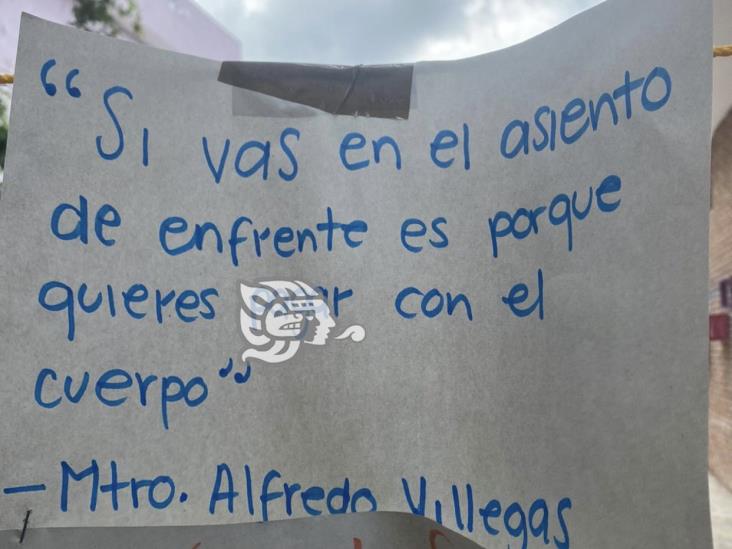 “Si vas en el asiento
de enfrente es porque
quieres con el
cuerpo”
- Mtro. Alfredo Villegas